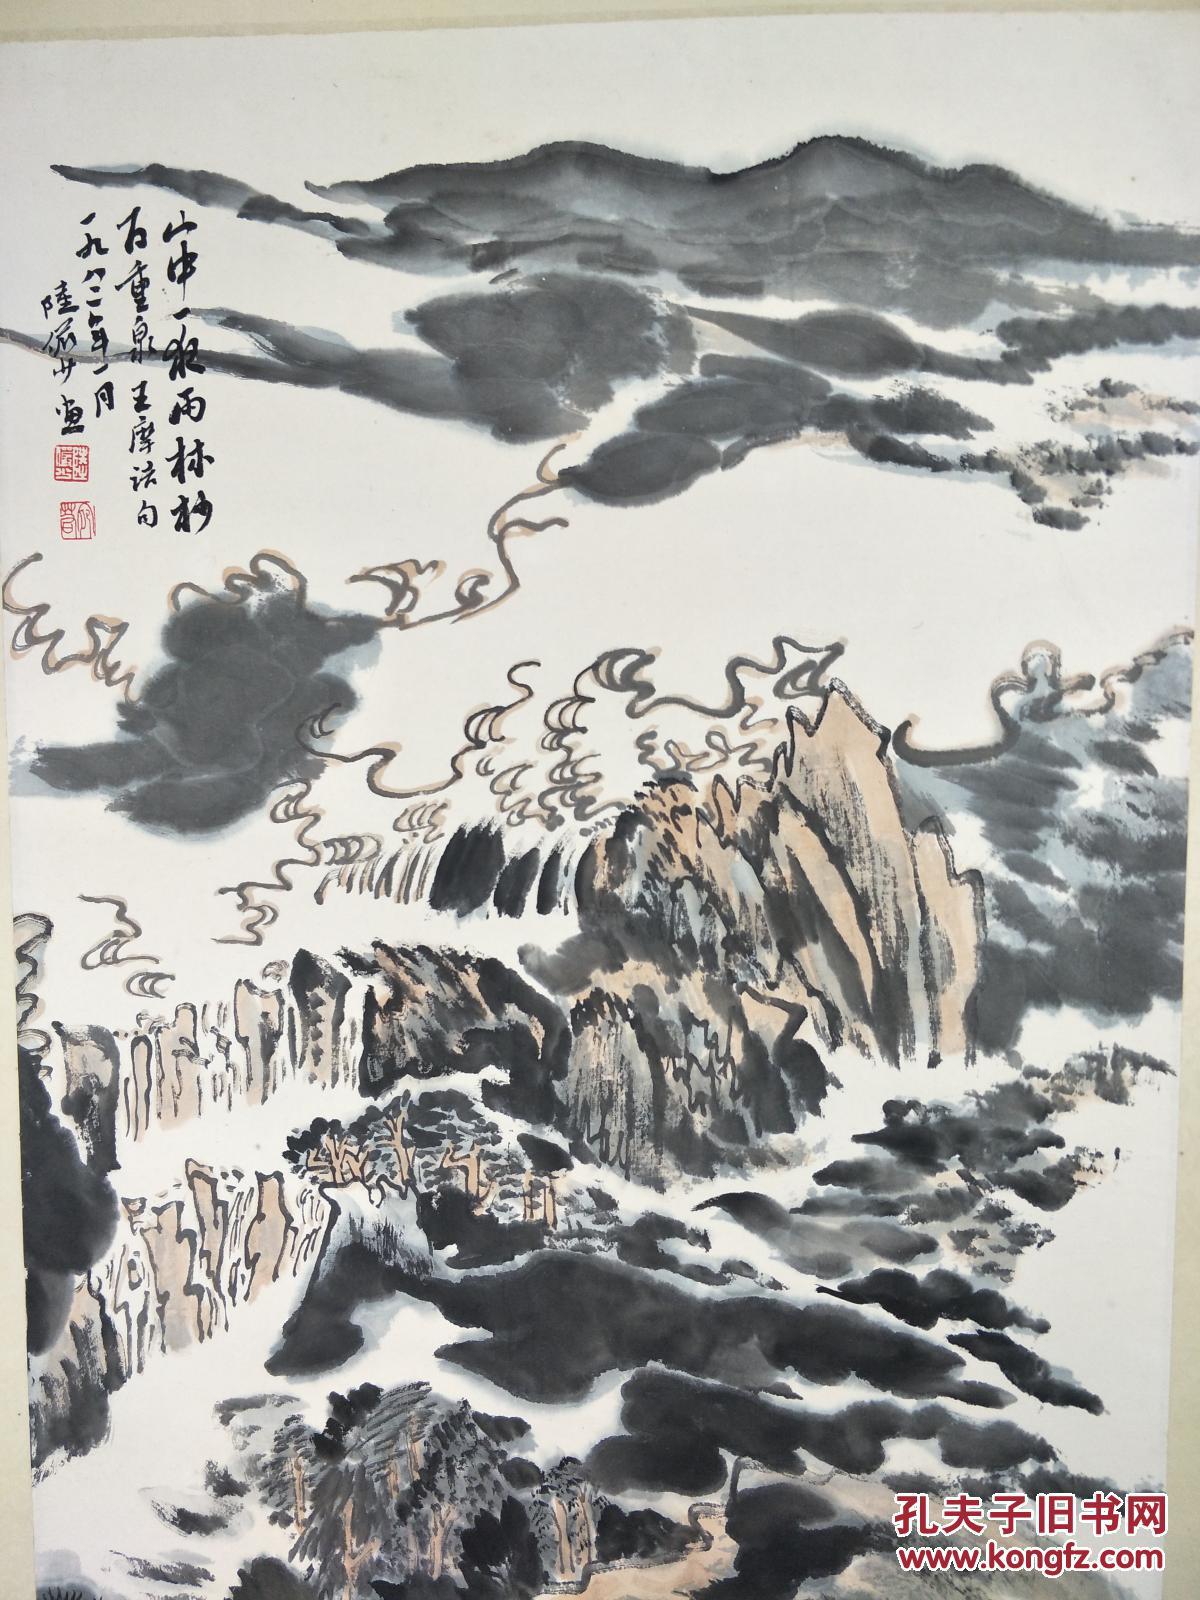 山中一夜雨林杪
百重泉王摩诘句
一九八二年一月
陸儼少畫
孔夫子旧书网
www.kongfz.com